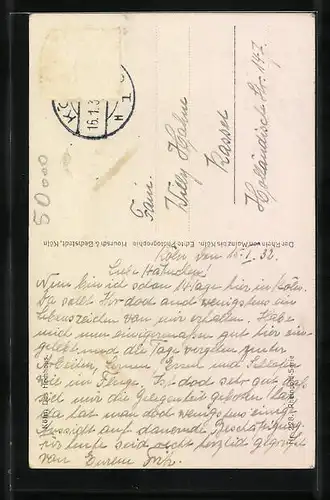 16.1.3
50000
Fam.
Willy Hahne
Kassel
Holländische Str. 147
Der Rhein von Mainz bis Köln. Echte Photographie Hourseh & Bechstedt, Köln
Köln, den 15.1.32.
Liebe Hahnchen!
Nun bin ich schon 14 Tage hier in Köln.
Da sollt Ihr doch auch wenigstens ein
Lebenszeichen von mir erhalten. Habe
mich nun einigermaßen gut hier ein-
gelebt und die Tage vergehen unter
Arbeiten, Lernen, Essen und Schlafen
wie im Fluge. Ist doch sehr gut daß
sich mir die Gelegenheit geboten hat,
da hat man doch wenigstens einige
Aussicht auf dauernde Beschäftigung.
Für heute seid recht herzlich gegrüßt
von Eurem